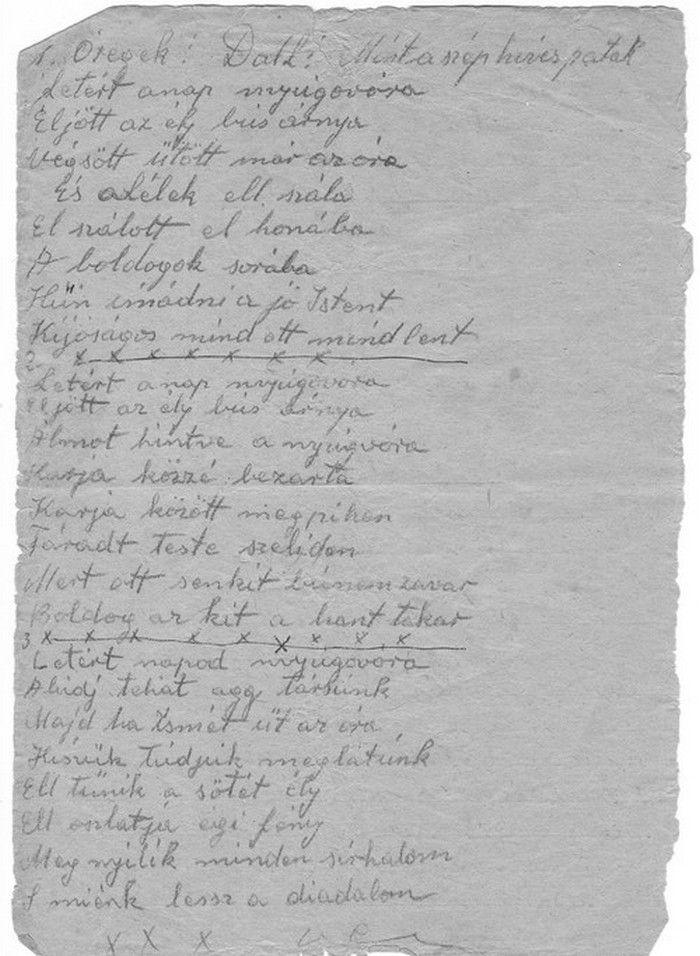 1. Öregek! Dall: Mint a szép híves patak
Letért a nap nyúgovóra
Eljött az élj bús árnya
Végsött ütött már az óra
És a Lélek ell szála
El szálott el honába
A boldogok sorába
Hün imádni a jó Istent
Kijóságos mind ott mind lent
2. x x x x x x x
Letért a nap nyúgovóra
Eljött az élj bús árnya
Álmot hintve a nyúgvóra
Karja közzé bezarta
Karja között megpihen
Fáradt teste szeliden
Mert ott senkit bú nem zavar
Boldog az kit a hant takar
3 x x x x x x x x x
Letért napod nyúgovóra
Aludj tehát agg társúnk
Majd ha Ismét üt az óra
Hisuk túdjuk meglátúnk
Ell tűnik a sötét élj
Ell oszlatja égi fény
Meg nyilik minden sirhalom
S miénk lessz a diadalom
x x x